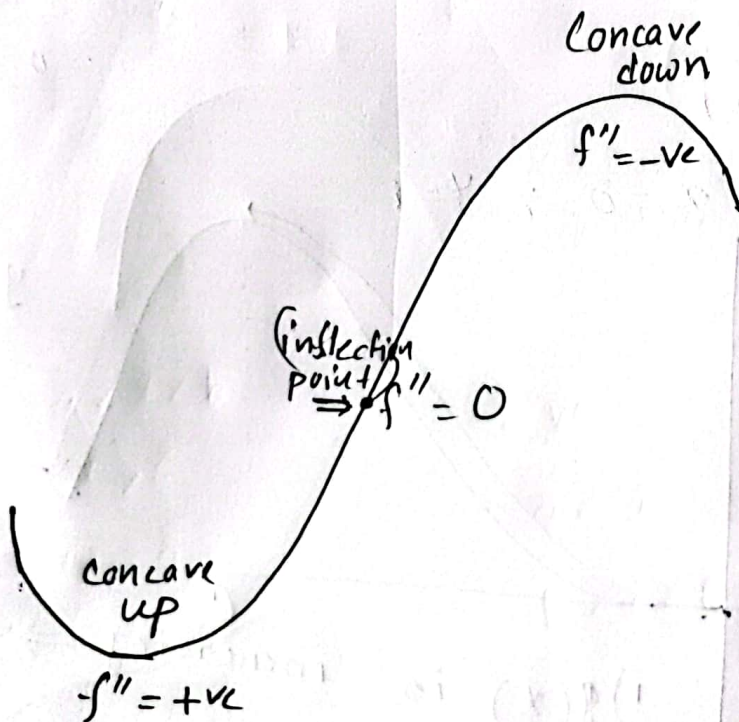 Concave
down
f'' = -ve
(inflection
point)
⇒ f'' = 0
concave
up
f'' = +ve